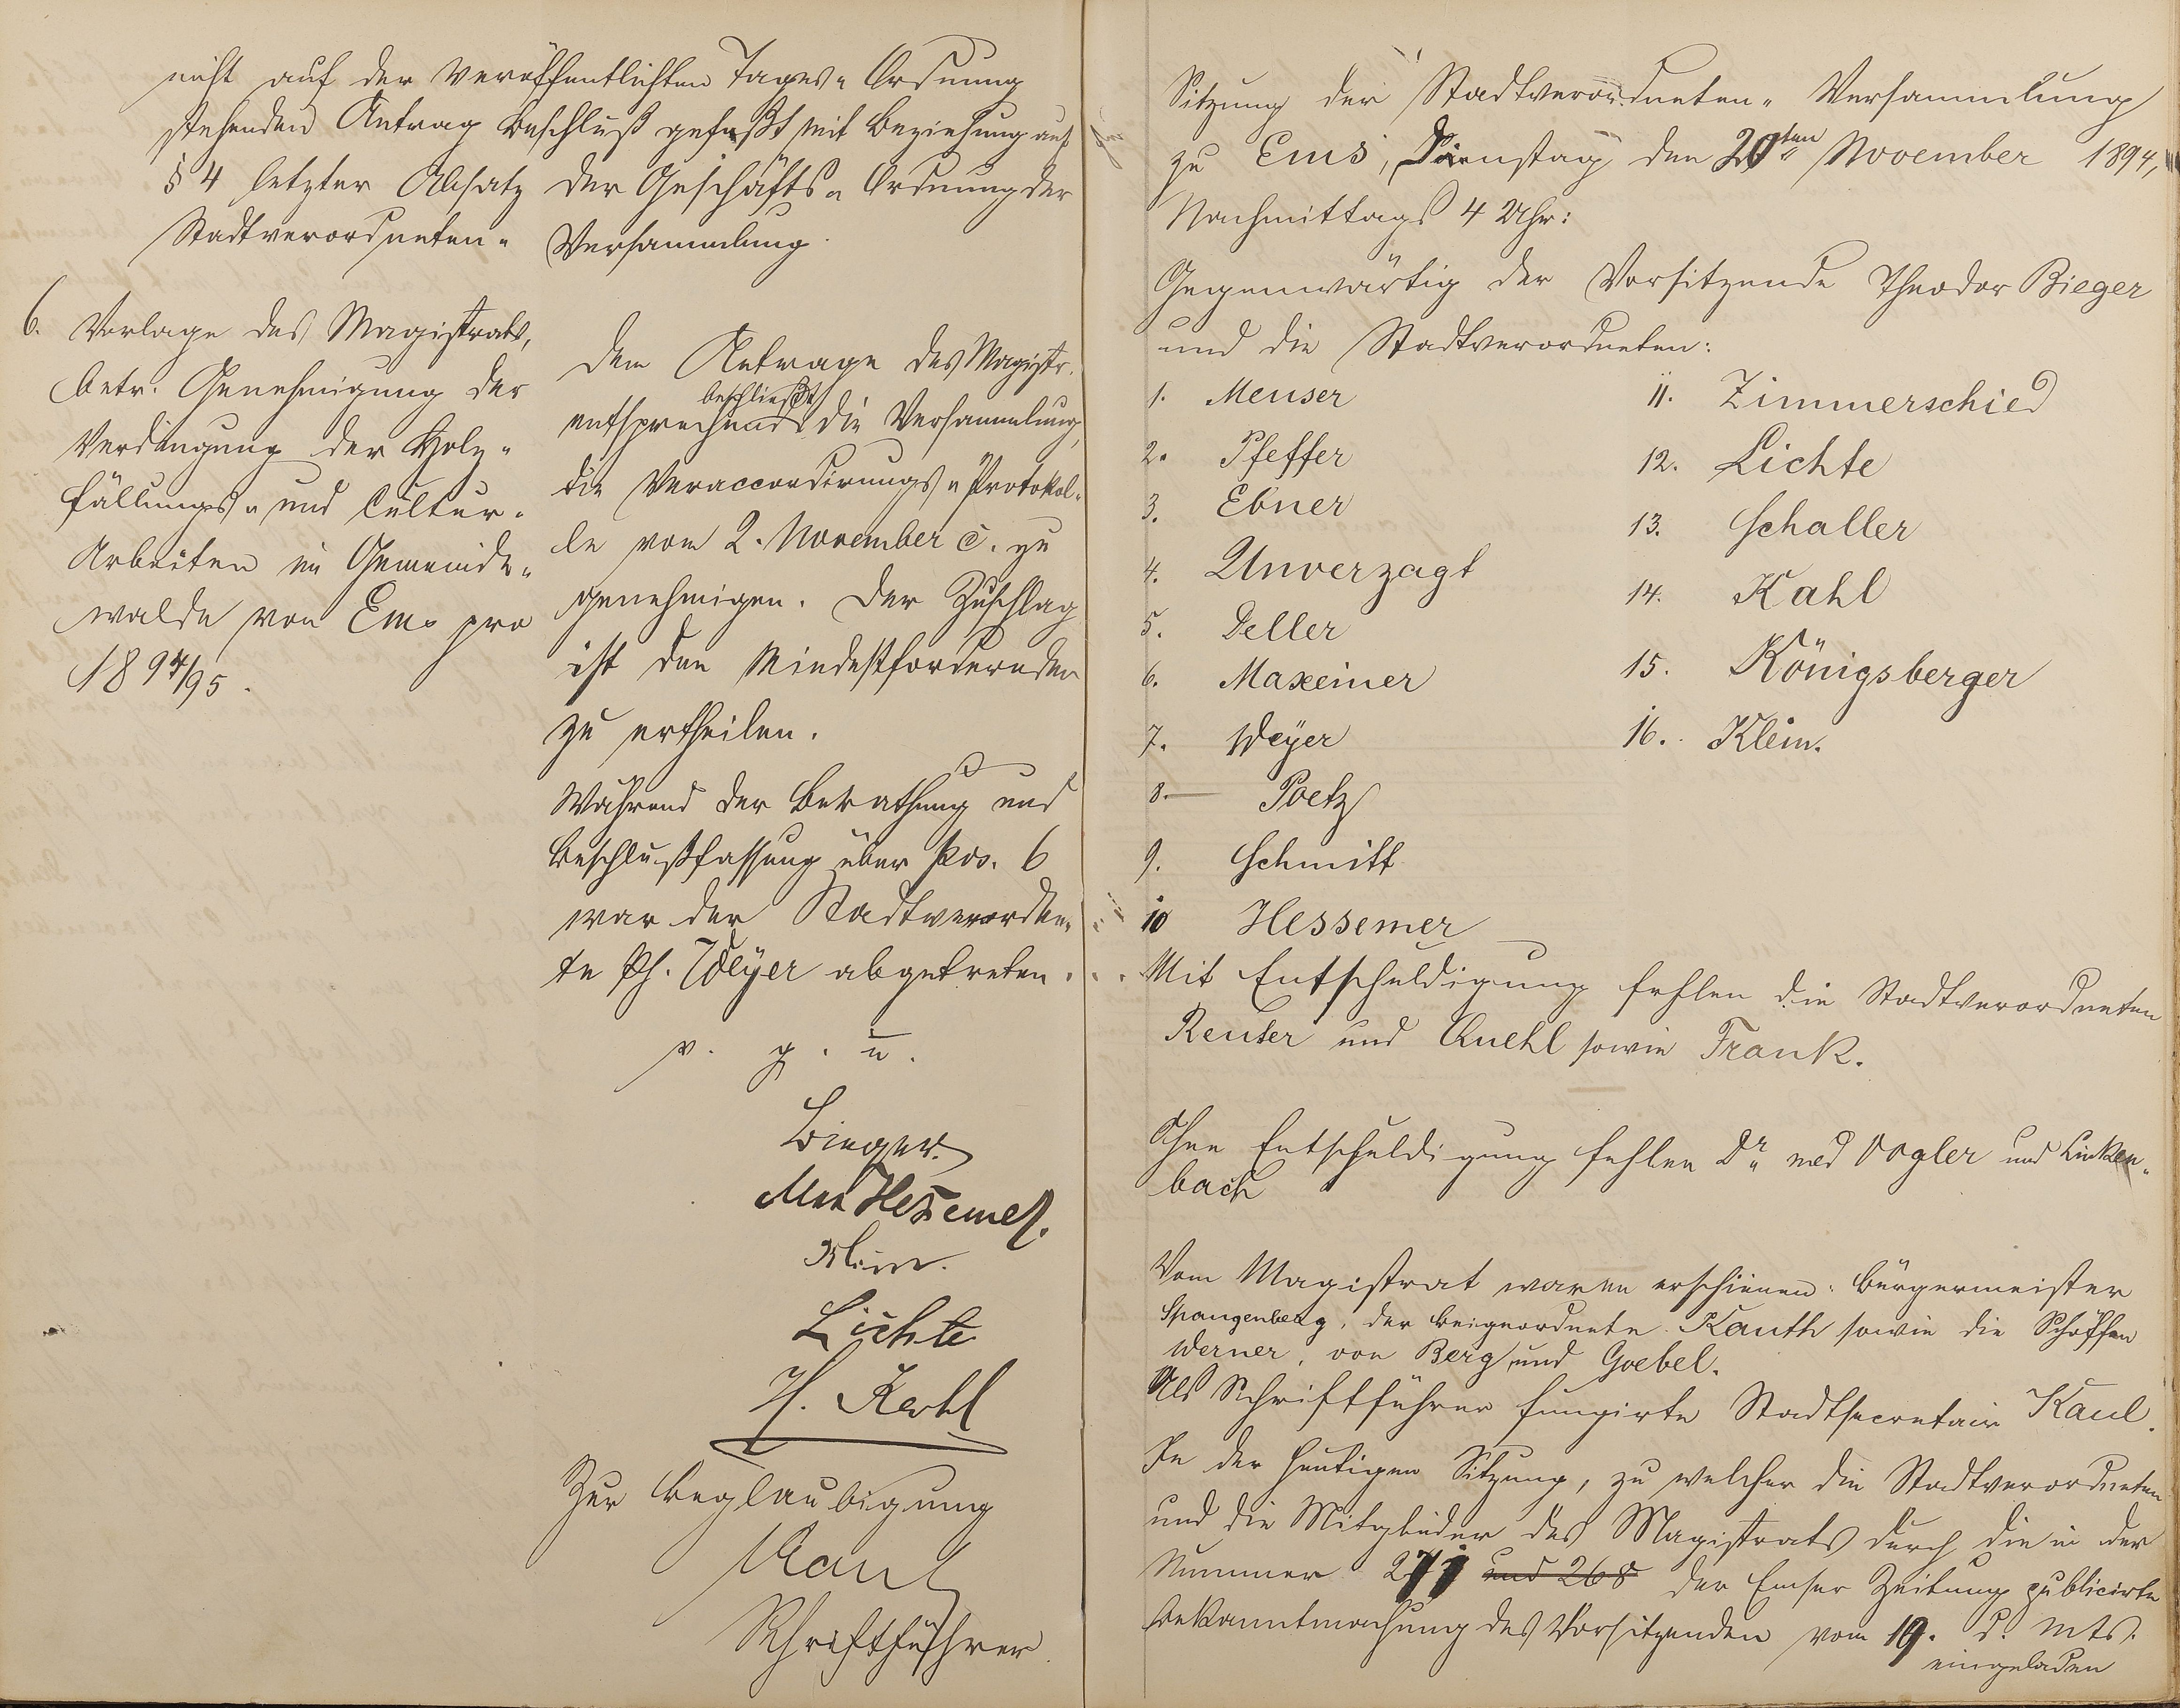 nicht auf der veröffentlichten Tages-Ordnung
stehenden Antrag Beschluß gefaßt mit Beziehung auf
§ 4 letzter Absatz der Geschäfts-Ordnung der
Stadtverordneten-Versammlung.
6. Vorlage des Magistrats,
betr. Genehmigung der
Verdingung der Holz-
fällungs- und Cultur-
Arbeiten im Gemeinde-
walde von Ems pro
1894/95.
Dem Antrage des Magistr.
beschließt
entsprechend die Versammlung,
die Veraccordirungs-Protokol-
le vom 2. November c. zu
genehmigen. Der Zuschlag
ist den Mindestfordernden
zu ertheilen.
Während der Berathung und
Beschlußfassung über Pos. 6
war der Stadtverordne-
te Ph. Weyer abgetreten.
v. g. u.
Bieger.
Max Hessemer.
Klein.
Lichte
H. Kahl
Zur Beglaubigung
Kaul
Schriftführer.
Sitzung der Stadtverordneten-Versammlung
zu Ems, Dienstag den 20ten November 1894,
Nachmittags 4 Uhr:
Gegenwärtig der Vorsitzende Theodor Bieger
und die Stadtverordneten:
1. Meuser
2. Pfeffer
3. Ebner
4. Unverzagt
5. Deller
6. Maxeiner
7. Weyer
8. Poetz
9. Schmitt
10 Hessemer
11. Zimmerschied
12. Lichte
13. Schaller
14. Kahl
15. Königsberger
16. Klein.
Mit Entschuldigung fehlen die Stadtverordneten
Reuter und Quehl sowie Frank.
Ohne Entschuldigung fehlen Dr. med Vogler und Linken-
bach
Vom Magistrat waren erschienen: Bürgermeister
Spangenberg, der Beigeordnete Kauth sowie die Schöffen
Werner, von Berg und Goebel.
Als Schriftführer fungirte Stadtsecretair Kaul.
In der heutigen Sitzung, zu welcher die Stadtverordneten
und die Mitglieder des Magistrats durch die in der
Nummer 271 und 268 der Emser Zeitung publicirte
Bekanntmachung des Vorsitzenden vom 19. d. Mts.
eingeladen